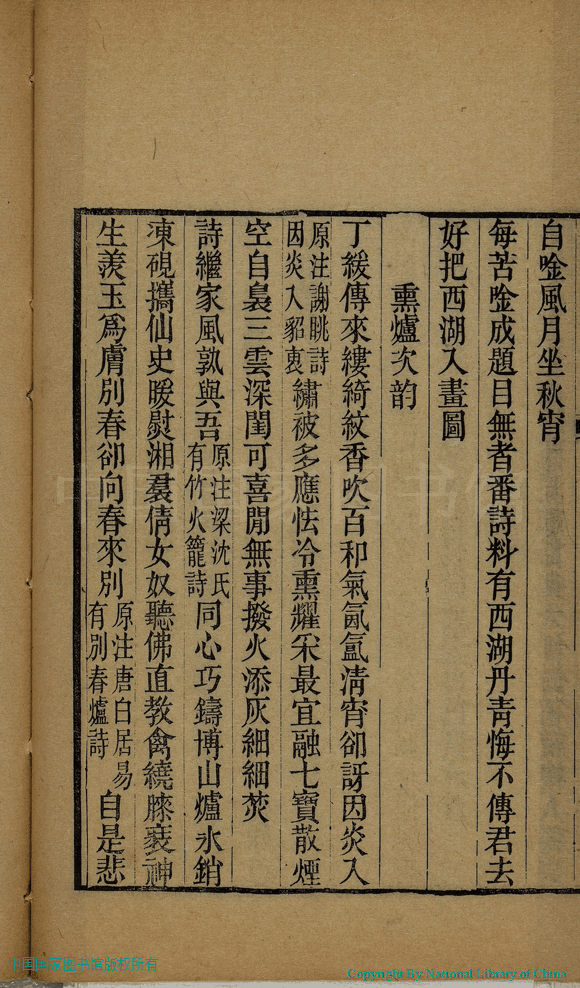 自唫風月坐秋宵
每苦唫成題目無者番詩料有西湖丹青悔不傳君去
好把西湖入畫圖
熏爐次韵
丁緩傳來縷綺紋香吹百和氣氤氳清宵卻訝因炎入
原注謝眺詩因炎入貂裘繡被多應怯冷熏耀采最宜融七寶散煙
空自裊三雲深閨可喜閒無事撥火添灰細細焚
詩繼家風孰與吾原注梁沈氏有竹火籠詩同心巧鑄博山爐氷銷
凍硯攜仙史暖熨湘裠倩女奴聽佛直教禽繞膝褻神
生羡玉爲膚別春卻向春來別原注唐白居易有別春爐詩自是悲
中国国家图书馆版权所有
Copyright By National Library of China